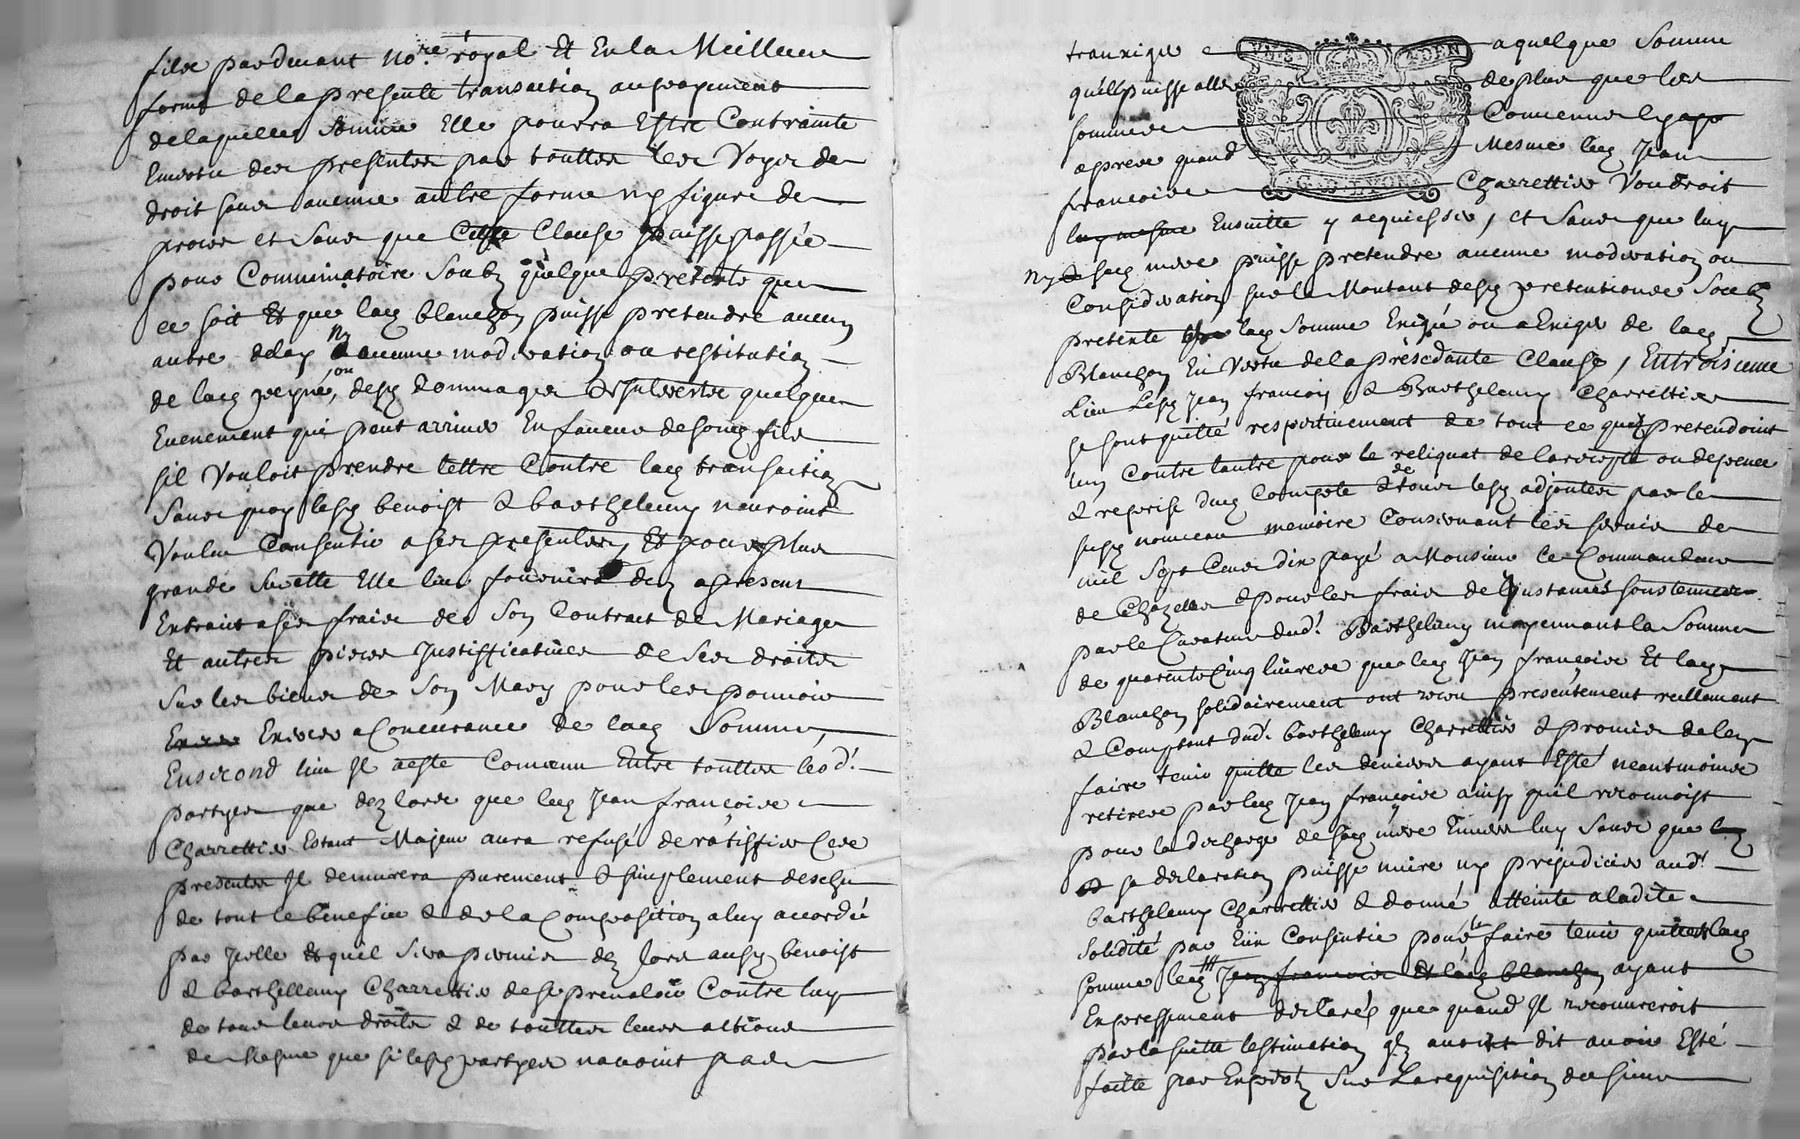 filz pardevant no.re royal Et En la Meilleure
forme de la presente transaction au payement
de laquelle somme Elle pourra Estre Contrainte
En vertu des presentes par touttes les Voyes de
droit sans aucune autre forme ny figure de
proces et sans que Cette Clause puisse passée
pour Comminatoire Soubz quelque pretexte que
ce soit Et que lad blanchon puisse pretendre aucun
autre delay ny aucune moderation ou restitution
de lad peyne, ou desd dommages Et Interestz quelque
Evenement qui peut arriver En faveur de sond filz
sil Vouloit prendre lettre Contre lad transaction
Sans quoy lesd benoist & barthelemy nauroint
Voulu Consentir a ses presentes, Et pour plus
grande Surette Elle leur fournira dez a present
Extrait a ses fraix de Son Contract de Mariage
Et autres pieces Justifficatives de Ses droits
Sur les biens de Son Mary pour les pouvoir
Exercer a Concurance de lad Somme,
En second lieu Il reste Convenu Entre touttes lesd.
partyes que dez lors que led Jean françois
Charrettier Estant Majeur aura refusé de ratiffier Ces
presentes Il demurera purement & simplement descheu
de tout le benefice & de la Composition a luy accordée
par Icelle & quil Sera permis dez lors ausd benoist
& barthellemy Charrettier de se prevaloir Contre luy
de tous leurs droits & de touttes leurs actions
de Mesme que si lesd partyes navoint pas
transigés a quelque Somme
quelle puisse aller de plus que les
sommes Convenues
apres quand Mesme led Jean
francois Charrettier Voudroit
luy mesme Ensuitte y acquiesser, et Sans que luy
ny sad mere puisse pretendre aucune moderation ou
Consideration sur le Montant desd pretentions Soubz
pretexte lad Somme Exigée ou a Exiger de lad
Blanchon En Vertu de la présedante Clause, En troisieme
Lieu Lesd Jean francois & Barthelemy Charrettier
se sont quitté respectivement de tout ce quils pretendoint
lun Contre lautre pour le reliquat de la recepte ou despence
& reprise dud Compte & de tous lesd adjoutes par le
susd nouveau memoire Concernant les servis de
mil Sept Cens dix payé a Monsieur le Commandeur
de Chazelles & pour les fraix de linstance soustenue
par le Curateur dud. Barthelemy moyennant la Somme
de quarente Cinq livres que led Jean françois Et lad
Blanchon solidairement ont recu presentement reellement
& Comptant dud. barthelemy Charrettier & promis de le
faire tenir quitte les deniers ayant Esté neantmoins
retirés par led Jean françois ainsy quil reconnoist
pour la descharge de sad mere Envers luy Sans que
sa declaration puisse nuire ny prejudicier aud.
barthelemy Charrettier & donné atteinte a ladite
solidité par Eux Consentie pour le faire tenir quitte de lad
somme led Jean francois Et lad blanchon ayant
Expressement declarés que quand Il recouvreroit
par la suitte lestimation quil avoit dit avoir Esté
faitte par Expertz Sur La requisition de sieur